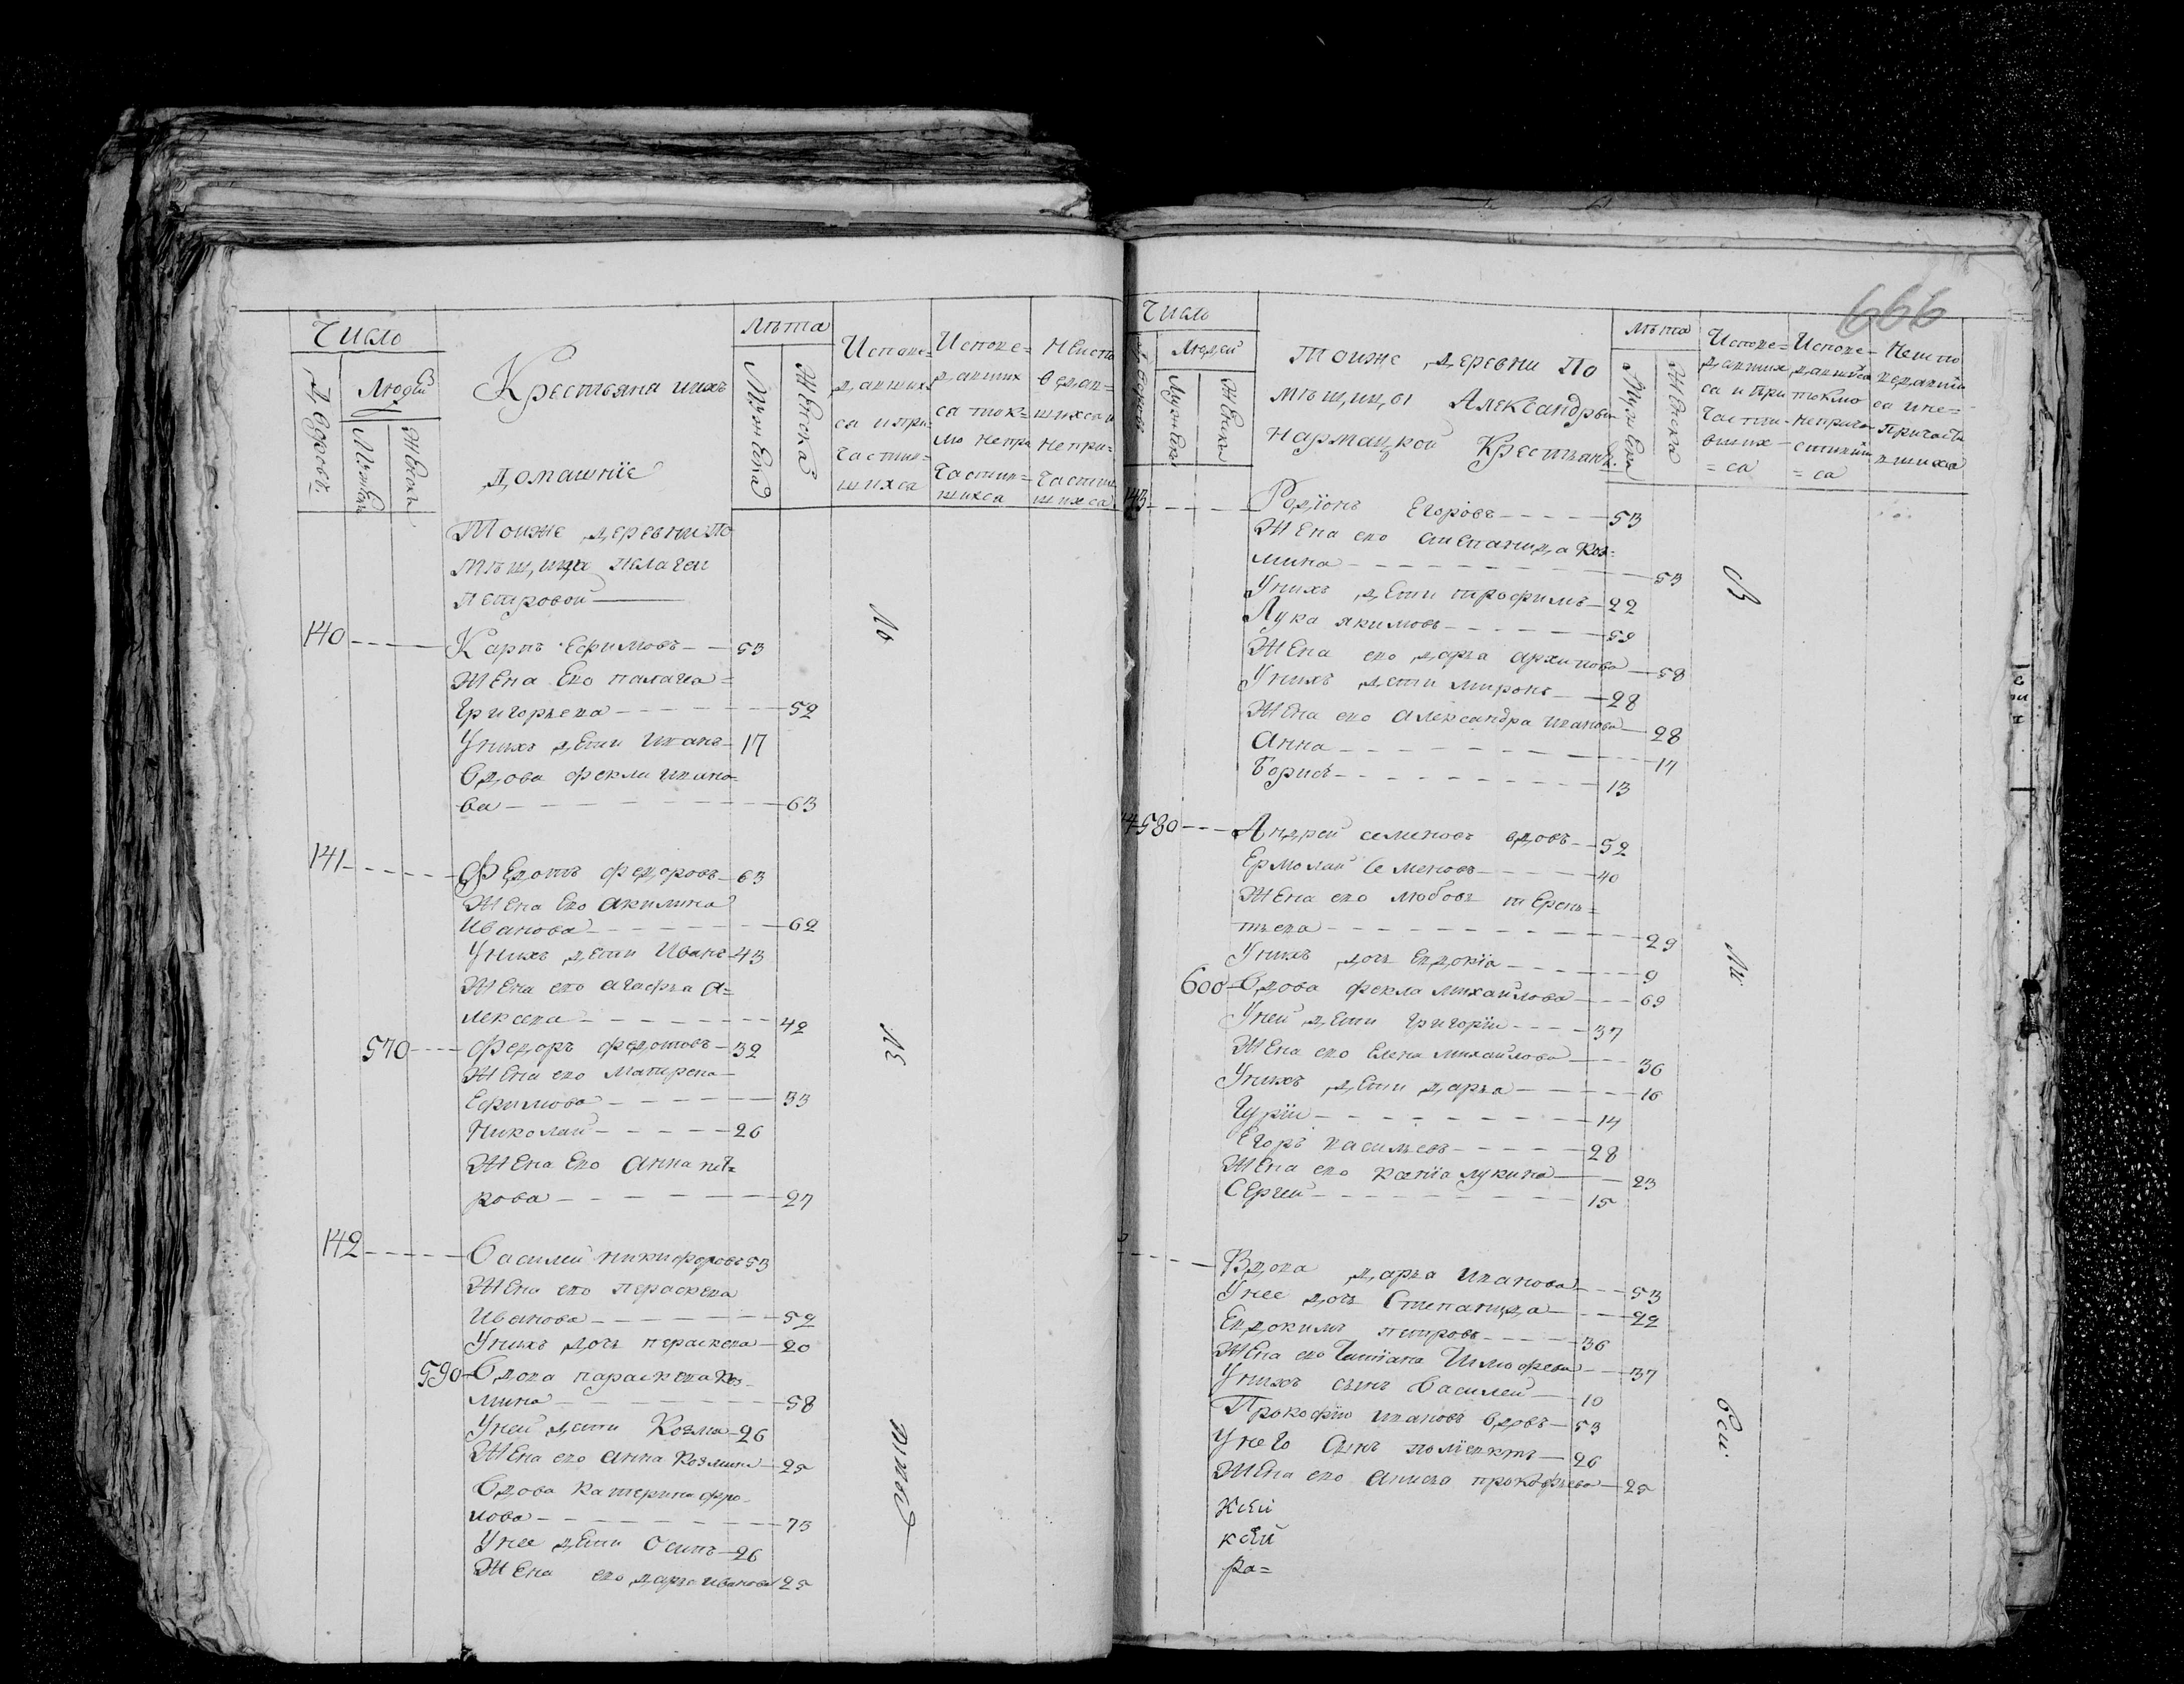 Число
Дворовъ.
Людей
Мужеска
Женска
Крестьяна ихъ
домашніе
Лѣта
Мужеска
Женска
Испове=
давших
ся и при=
частив=
шихся
Испове=
давших
ся ток=
мо непри
частив=
шихся
Неиспо
ведав=
шихся и
непри=
частив
шихся
Тоижѣ деревни по
мѣщица Пелагеи
Петровой
140 Карпъ Ефимовъ 53
Жена Ево палагея=
Григорьева 52
Унихъ дѣти Иванъ 17
вдова фекла Ивано=
ва 63
141 Федотъ федоровъ 63
Жена Ево Акилина
Иванова 62
Унихъ дѣти Иванъ 43
Жена ево агафья А=
лексева 42
570 Федоръ федотовъ 32
Жена ево Матрена
Ефимова 33
Николай 26
Жена Ево Анна пет=
рова 27
142 Василей никифоровъ 53
Жена ево Пераскева
Иванова 52
Унихъ дочь пераскева 20
590 Вдова параскева Коз=
мина 58
Уней дѣти Козма 26
Жена ево анна Козмина 25
Вдова катерина фро=
лова 73
Унее дѣти Осипъ 26
Жена ево дарья иванова 25
666
Число
Дворовъ
Людей
Мужеска
Женска
Тоиже деревни По
мѣщицы Александры
Нармацкой Крестьянъ.
Лѣта
Мужеска
Женска
Испове=
давших
ся и при
части=
вших
=ся
Испове=
давшися
токмо
неприча
стивши
=ся
Неиспо
ведавши
ся и не=
причасти
вшихся
143 Родіонъ Егоровъ 53
Жена ево степанида Коз=
мина 53
Унихъ дѣти трофимъ 22
Лука якимовъ 59
Жена ево дарья архипова 58
Унихъ дѣти миронъ 28
Жена ево Александра иванова 28
Анна 17
Борисъ 13
580 Андрей семеновъ вдовъ 52
Ермолай Семеновъ 40
Жена ево любовь терень=
тьева 29
Унихъ дочь Евдокія 9
600 Вдова фекла михайлова 69
Уней дѣти григорій 37
Жена ево Елена михайлова 36
Унихъ дѣти дарья 16
Гурій 14
Егоръ васильевъ 28
Жена ево Ксенія лукина 23
Сергей 15
Вдова дарья иванова 53
Унее дочь Степанида 22
Евдокимъ петровъ 36
Жена ево Татіана Тимофеева 37
Унихъ сынъ Василей 10
Прокофій ивановъ вдовъ 53
Унего сынъ поліектъ 26
Жена ево Анисья прокофьева 25
ксей
ксей
ра=